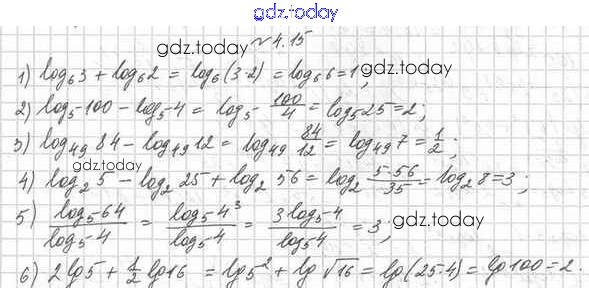 gdz.today
№ 4.15
gdz.today
gdz.today
1) log₆3 + log₆2 = log₆(3·2) = log₆6 = 1;
2) log₅100 - log₅4 = log₅ 100/4 = log₅25 = 2;
3) log₄₉ 84 - log₄₉ 12 = log₄₉ 84/12 = log₄₉ 7 = 1/2;
gdz.today
4) log₂ 5 - log₂ 25 + log₂ 56 = log₂ 5·56/35 = log₂ 8 = 3;
5) log₅64/log₅4 = log₅4³/log₅4 = 3log₅4/log₅4 = 3;
gdz.today
6) 2lg5 + 1/2 lg16 = lg5² + lg √16 = lg(25·4) = lg100 = 2.